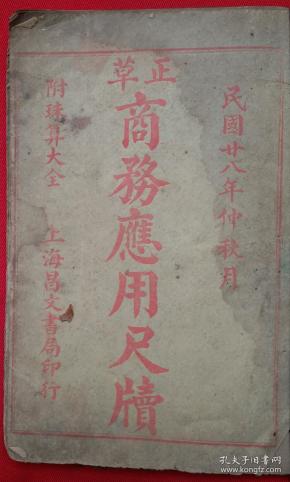 民國廿八年仲秋月
正草
商務應用尺牘
附珠算大全
上海昌文書局印行
孔夫子旧书网